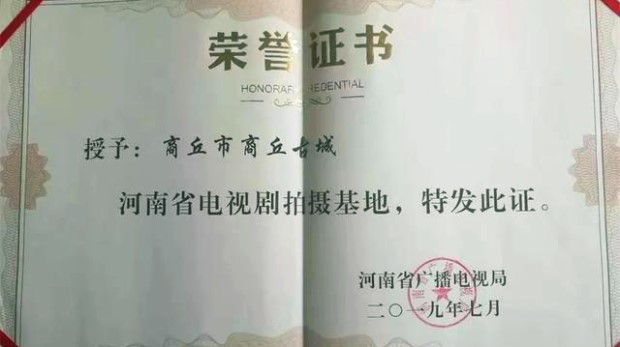 荣誉证书
HONORARY CREDENTIAL
授予：商丘市商丘古城
河南省电视剧拍摄基地，特发此证。
河南省广播电视局
二〇一九年七月